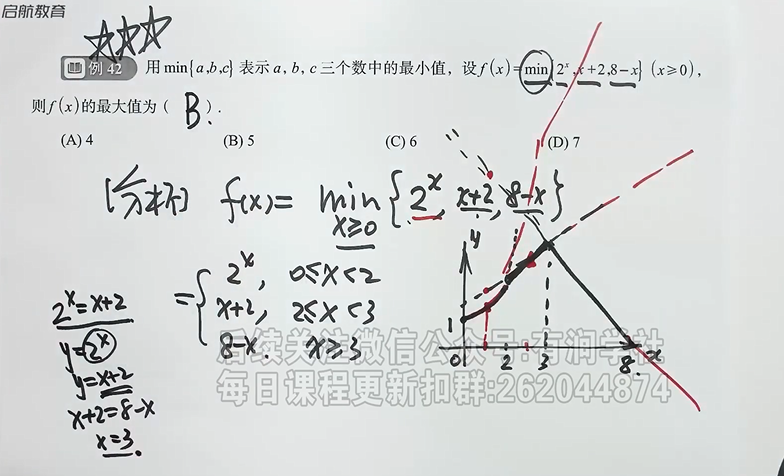 启航教育
例 42 用min{a,b,c}表示a, b, c三个数中的最小值，设f(x)=min{2^x,x+2,8-x}(x≥0),
则f(x)的最大值为( B ).
(A) 4 (B) 5 (C) 6 (D) 7
[分析] f(x)= min x≥0 {2^x, x+2, 8-x}
={ 2^x, 0≤x<2
x+2, 2≤x<3
8-x. x≥3
2^x=x+2
y=2^x
y=x+2
x+2=8-x
x=3.
y
1
0 2 3 8 x
后续关注微信公众号:古润学社
每日课程更新扣群:262044874